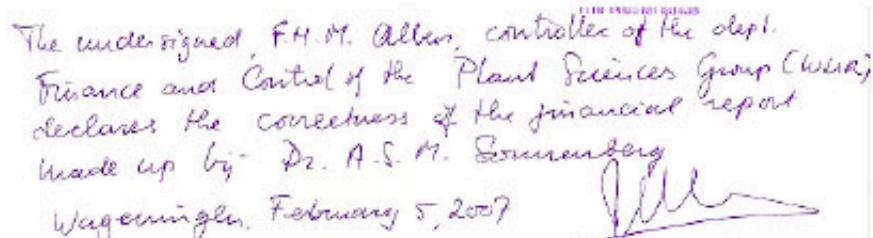 The undersigned, F.H.M. Albers, controller of the dept.
Finance and Control of the Plant Sciences Group (WUR)
declares the correctness of the financial report
made up bij Dr. A.S.M. Sonnenberg
Wageningen, February 5, 2007